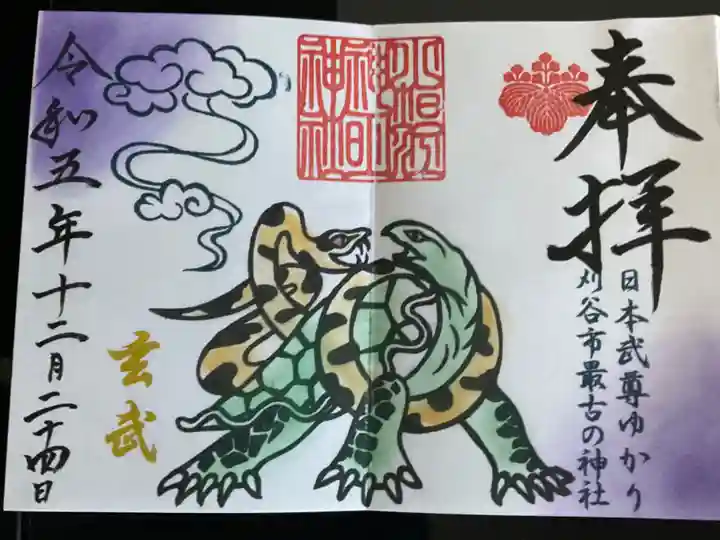 奉拝
日本武尊ゆかり
刈谷市最古の神社
玄武
令和五年十二月二十四日